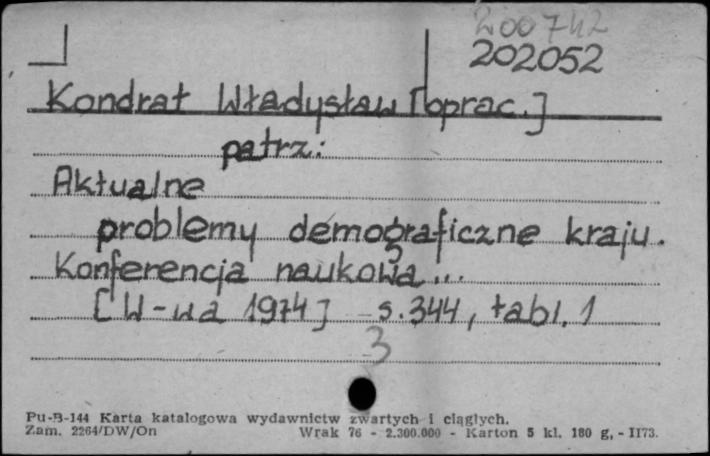 200742
202052
Kondrat Władysław [oprac.]
patrz:
Aktualne
problemy demograficzne kraju.
Konferencja naukowa...
[W-wa 1974] s. 344, tabl. 1
3
Pu-B-144 Karta katalogowa wydawnictw zwartych i ciągłych.
Zam. 2264/DW/On Wrak 76 - 2.300.000 - Karton 5 kl. 180 g, - II73.